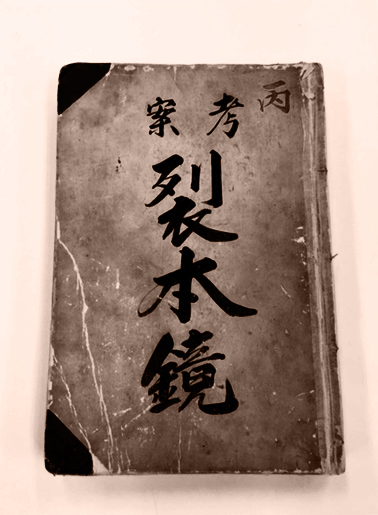 丙
考案
裂本鏡